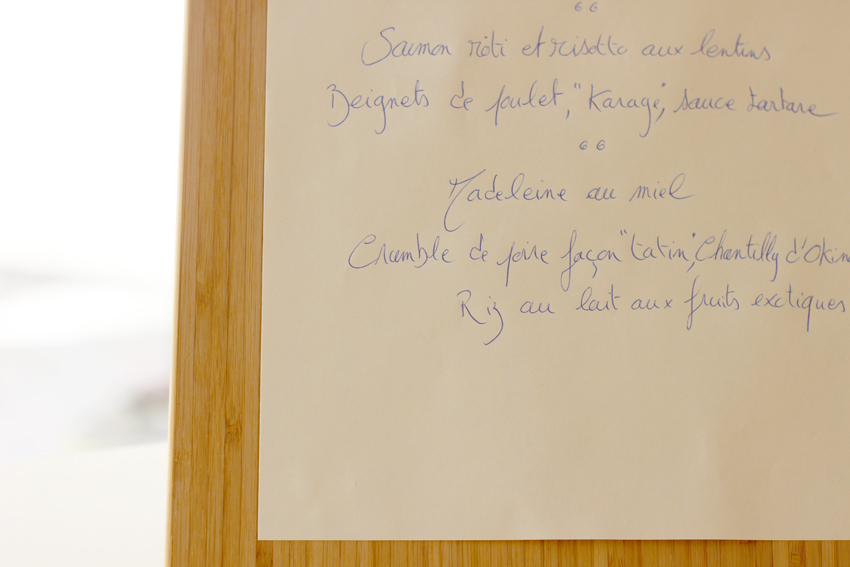 66
Saumon rôti et risotto aux lentins
Beignets de poulet, "Karage", sauce tartare
66
Madeleine au miel
Crumble de poire façon "tatin", Chantilly d'Okin
Riz au lait aux fruits exotiques